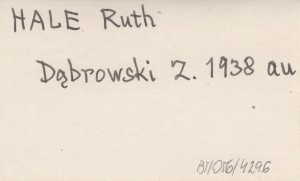 HALE Ruth
Dąbrowski Z. 1938 au
BT/OT6/4296